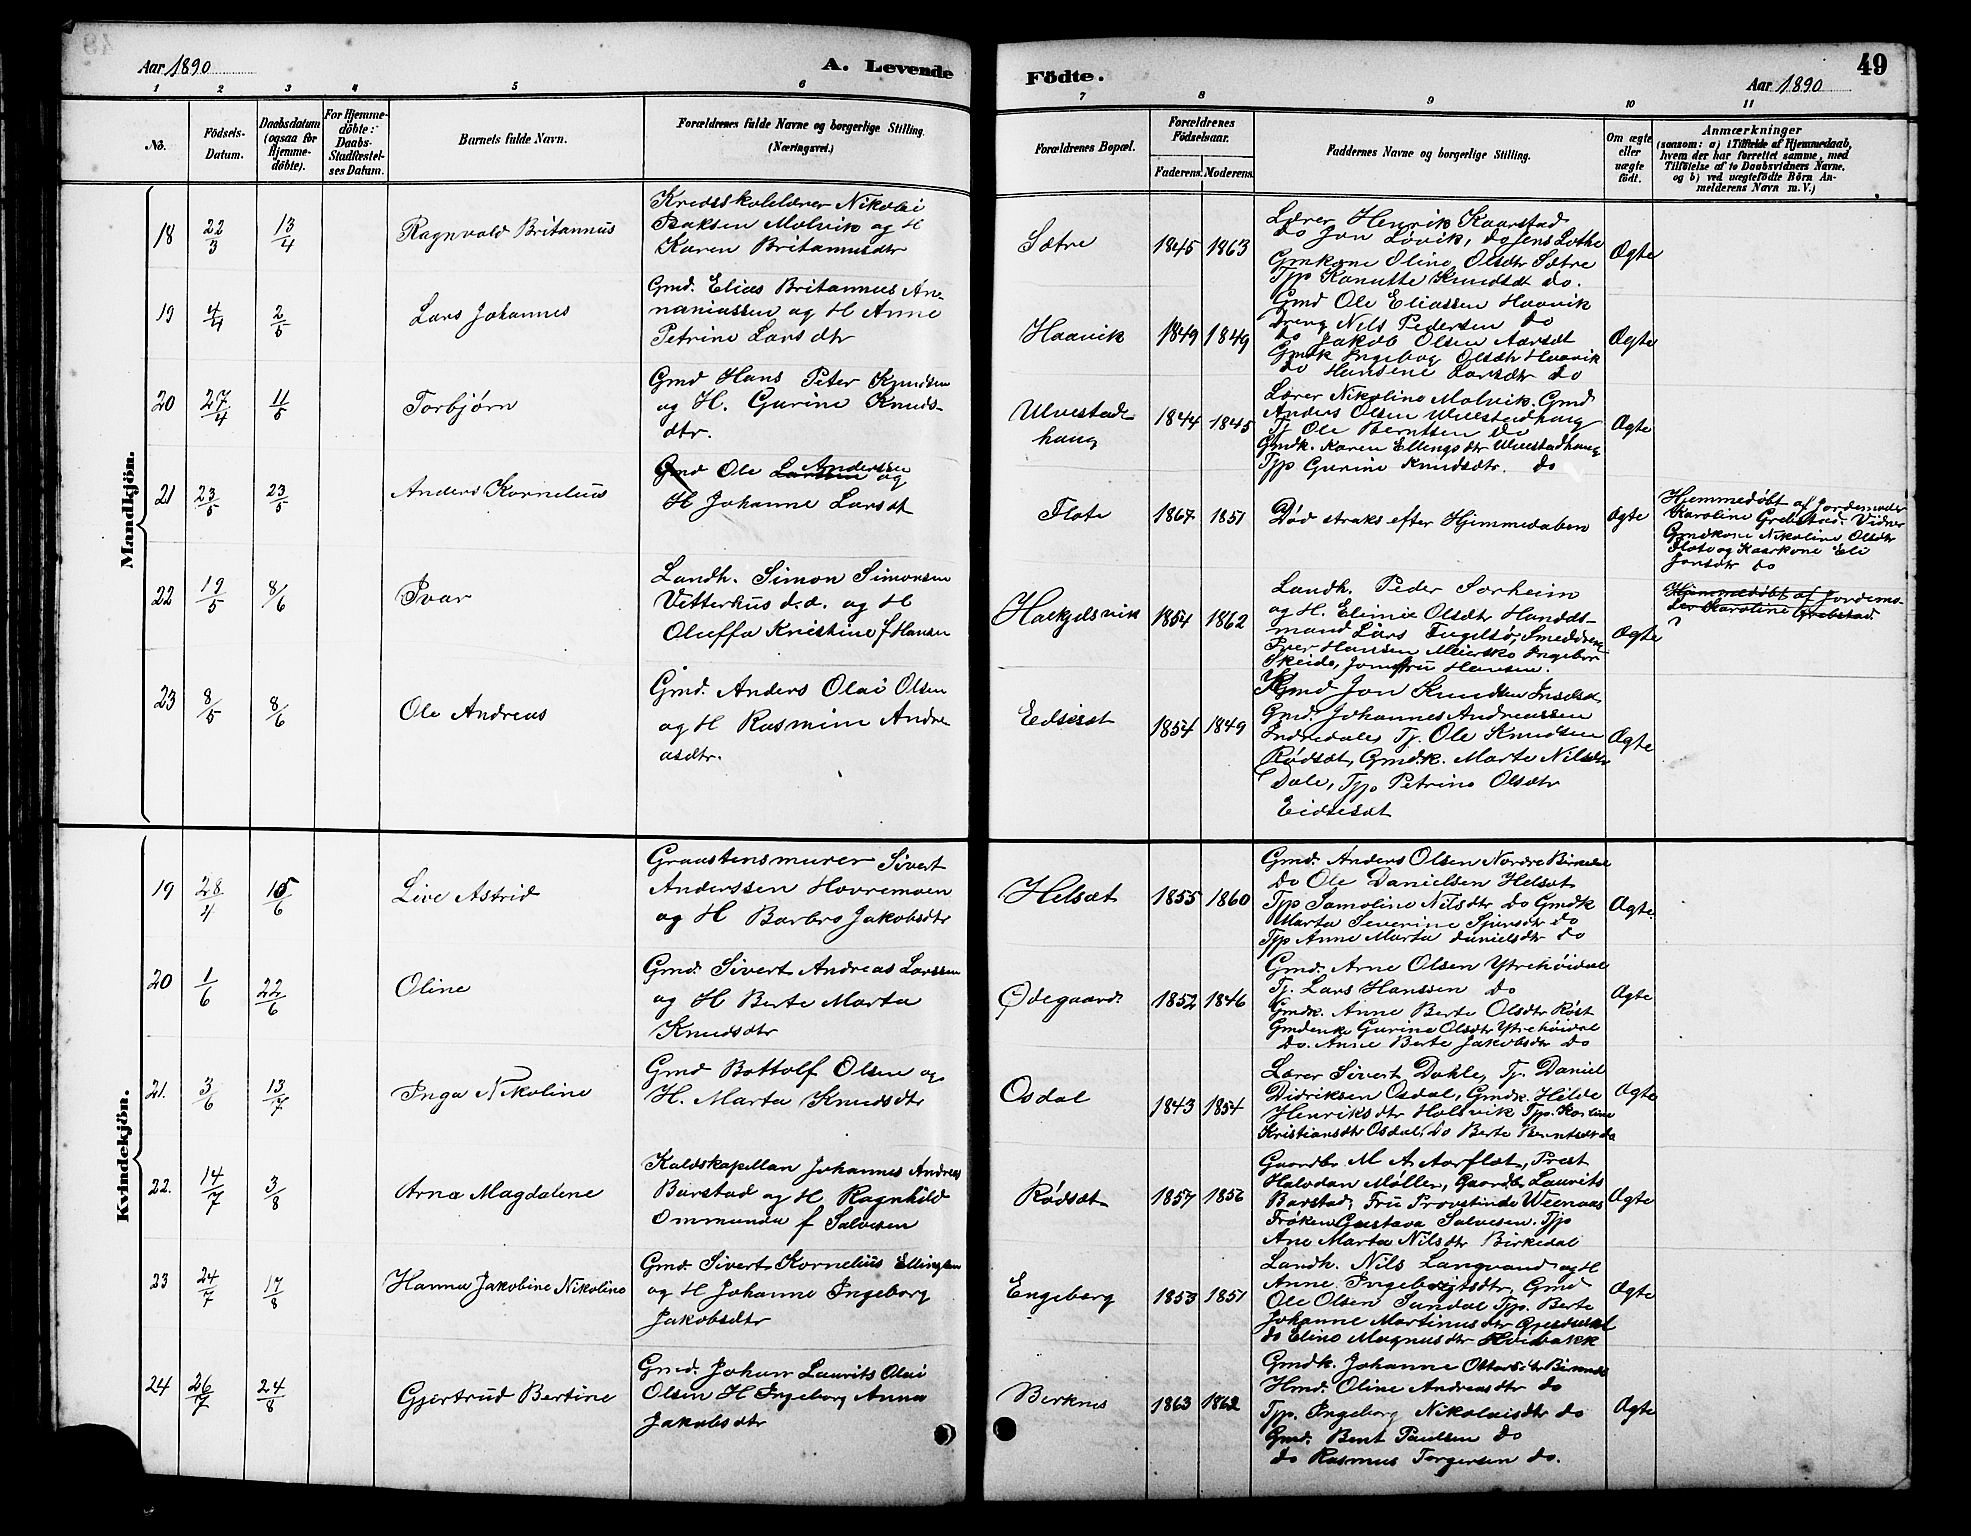 Aar 1890
A. Levende Födte.
49
Aar 1890
1 2 3 4 5 6 7 8 9 10 11
No.
Födsels-Datum.
Daabsdatum (ogsaa for Hjemmedöbte).
For Hjemmedöbte: Daabs-Stadfæstelses Datum.
Barnets fulde Navn.
Forældrenes fulde Navne og borgerlige Stilling. (Næringsvei.)
Forældrenes Bopæl.
Forældrenes Födselsaar.
Faderens. Moderens.
Faddernes Navne og borgerlige Stilling.
Om ægte eller uægte födt.
Anmærkninger
(saasom: a) i Tilfælde af Hjemmedaab,
hvem der har forrettet samme, med
Tilföielse af to Daabsvidners Navne,
og b) ved uægtefödte Börn Anmelderens Navn m. V.)
Mandkjön.
18 22/3 13/4 Ragnvald Britannus
Kredsskolelærer Nikolai
Isaksen Molvik og H
Karen Britanusdtr
Sætre 1845 1863
Lærer Henrik Kaarstad
do Jon Løvik, do Jens Lothe
Gmkone Oline Olsdtr Sætre
Tjp Kanutte Knudsdt do.
Ægte
19 4/4 2/5 Lars Johannes
Gmd. Elias Britannus An-
naniassen og H Anne
Petrine Larsdtr
Haavik 1849 1849
Gmd Ole Eliassen Haavik
Dreng Nils Pedersen do
do Jakob Olsen Aarsæt
Gmdk Ingebog Olsdtr Haavik
do Hansene Larsdtr do
Ægte
20 27/4 11/5 Torbjørn
Gmd Hans Peter Knudsen
og H. Gurine Knuds-
dtr.
Ulvestad-
haug 1844 1845
Lærer Nikoline Molvik. Gmd
Anders Olsen Ullestadhaug
Tj Ole Berntsen do
Gmdk. Karen Ellingsdtr Ullestadhaug
Tjp Gurine Knudsdtr. do
Ægte
21 23/5 23/5 Anders Kornelius
Gmd Ole Larssen Anderssen og
H Johanne Larsdt
Flote 1867 1851
Død straks efter Hjemmedaben
Ægte
Hjemmedøbt af Jordemoder
Karoline Grebstad. Vidner
Gmdkone Nikoline Olsdtr
Flote og Kaarkone Eli
Jonsdtr do
22 19/5 8/6 Ivar
Landh. Simon Simonsen
Vetterhus d.d. og H
Oluffa Kristine f Hansen
Halkjelsvik 1854 1862
Landh. Peder Sorheim
og H. Elinie Olsdtr Handels-
mand Lars Fugelsø, Smeddreng
Iver Hansen Meiersko Ingebor
Skeide, Jomfru Hansen.
Ægte
Hjemmedøbt af Jordemo-
der Karoline Grebstad
?
23 8/5 8/6 Ole Andreas
Gmd. Anders Olai Olsen
og H Rasmine Andre
asdtr.
Edsisæt 1854 1849
Gmd Jon Knudsen
Gmd. Johannes Andreassen
Indredales Tj. Ole Knudsen
Rødsæt, Gmdk. Marte Nilsdtr
Dale, Tjp Petrine Olsdtr
Eidsisæt
Ægte
Kvindekjön.
19 28/4 15/6 Live Astrid
Graastensmurer Sivert
Anderssen Hovremoen
og H Barbro Jakobsdtr
Helsæt 1855 1860
Gmd. Anders Olsen Nordre Birkedal
do Ole Danielsen Helsæt
Tjp Samoline Nilsdtr do Gmdk
Marta Severine Sjursdtr do
Tjp Anne Marta danielsdtr do
Ægte.
20 1/6 22/6 Oline
Gmd. Sivert Andreas Larssen
og H Berte Marta
Knudsdtr
Ødegaard 1852 1846
Gmd. Arne Olsen Ytrehøidal
Tj. Lars Hanssen do
Gmdk. Anne Berte Olsdtr Røst
Gmdenke Gurine Olsdtr Ytrehøidal
do. Anne Berte Jakobsdtr do
Ægte
21. 3/6 13/7 Inga Nikoline
Gmd Bottolf Olsen og
H. Marta Knudsdtr
Osdal 1843 1854
Lærer Sivert Dahle, Tj. Daniel
Didriksen Osdal, Gmdk. Helde
Henriksdtr Holsvik Tjp.
Kristiansdtr Osdal, do Berte Berntsdt do
Ægte
22. 14/7 3/8 Arna Magdalene
Kaldskapellan Johannes Andreas
Barstad og H Ragnhild
Ommunda f Salvesen
Rødsæt 1857 1856
Gaardbr M A Aarflot, Prest
Halvdan Møller, Gaardbr Laurits
Barstad, Fru Provstinde Weenaas
Frøken Gustava Salvesen. Tjp
Ane Marta Nilsdtr Birkedal
Ægte
23 24/7 17/8 Hanna Jakobine Nikoline
Gmd Sivert Kornelius Ellingsen
og H Johanne Ingeborg
Jakobsdtr
Engeberg 1853 1851
Landh. Nils Langvand og H
Anne. Gmd
Ole Olsen Sundal Tjp. Berte
Johanne Martinusdtr
do Eline Magnusdtr Hvidbakk
Ægte
24 26/7 24/8 Gjertrud Bertine
Gmd. Johan Laurits Olai
Olsen H Ingeborg Anna
Jakobsdtr
Berknes 1863 1862
Gmdk. Johanne
Hmd. Oline Andreasdtr do
Tjp. Ingeborg Nikolaisdtr do
Gmd. Bent Paulsen do
do Rasmus Torgersen do.
Ægte